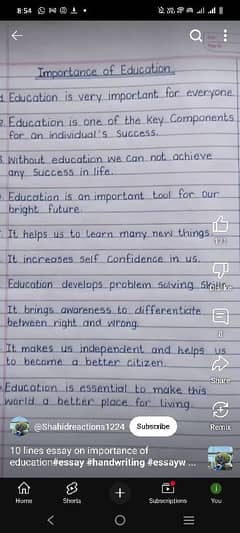 8:54
Importance of Education.
Education is very important for everyone
Education is one of the key Components
for an individual's Success.
Without education we can not achieve
any Success in life.
Education is an important tool for our
bright future.
It helps us to learn many new things
It increases self Confidence in us.
Education develops problem solving skills
It brings awareness to differentiate
between right and wrong.
It makes us independent and helps us
to become a better citizen.
Education is essential to make this
world a better place for living.
Dislike
Share
Remix
@Shahidreactions1224 Subscribe
10 lines essay on importance of
education#essay #handwriting #essayw ...
Home Shorts Subscriptions You